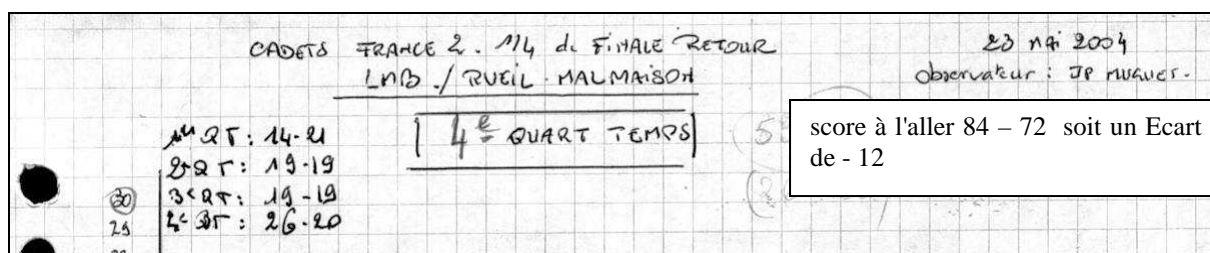 CADETS FRANCE 2 . 1/4 de FINALE RETOUR
LMB / RUEIL-MALMAISON
23 mai 2004
Observateur : JP MUGUET.
4e QUART TEMPS
1er QT : 14-21
2e QT : 19-19
3e QT : 19-19
4e QT : 26-20
30
29
score à l'aller 84 – 72 soit un Ecart
de - 12